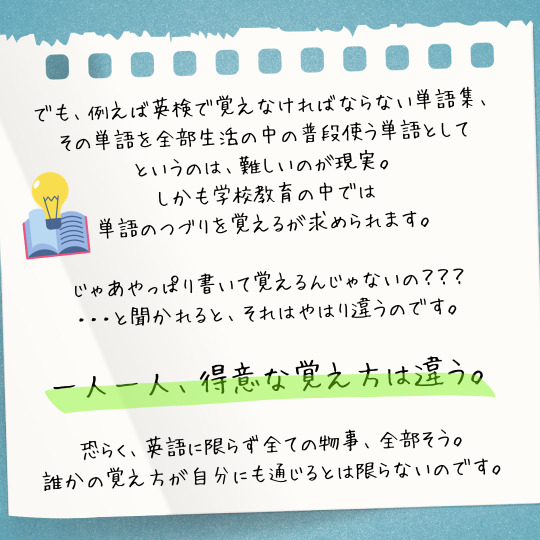 でも、例えば英検で覚えなければならない単語集、
その単語を全部生活の中の普段使う単語として
というのは、難しいのが現実。
しかも学校教育の中では
単語のつづりを覚えるが求められます。
じゃあやっぱり書いて覚えるんじゃないの???
・・・と聞かれると、それはやはり違うのです。
一人一人、得意な覚え方は違う。
恐らく、英語に限らず全ての物事、全部そう。
誰かの覚え方が自分にも通じるとは限らないのです。